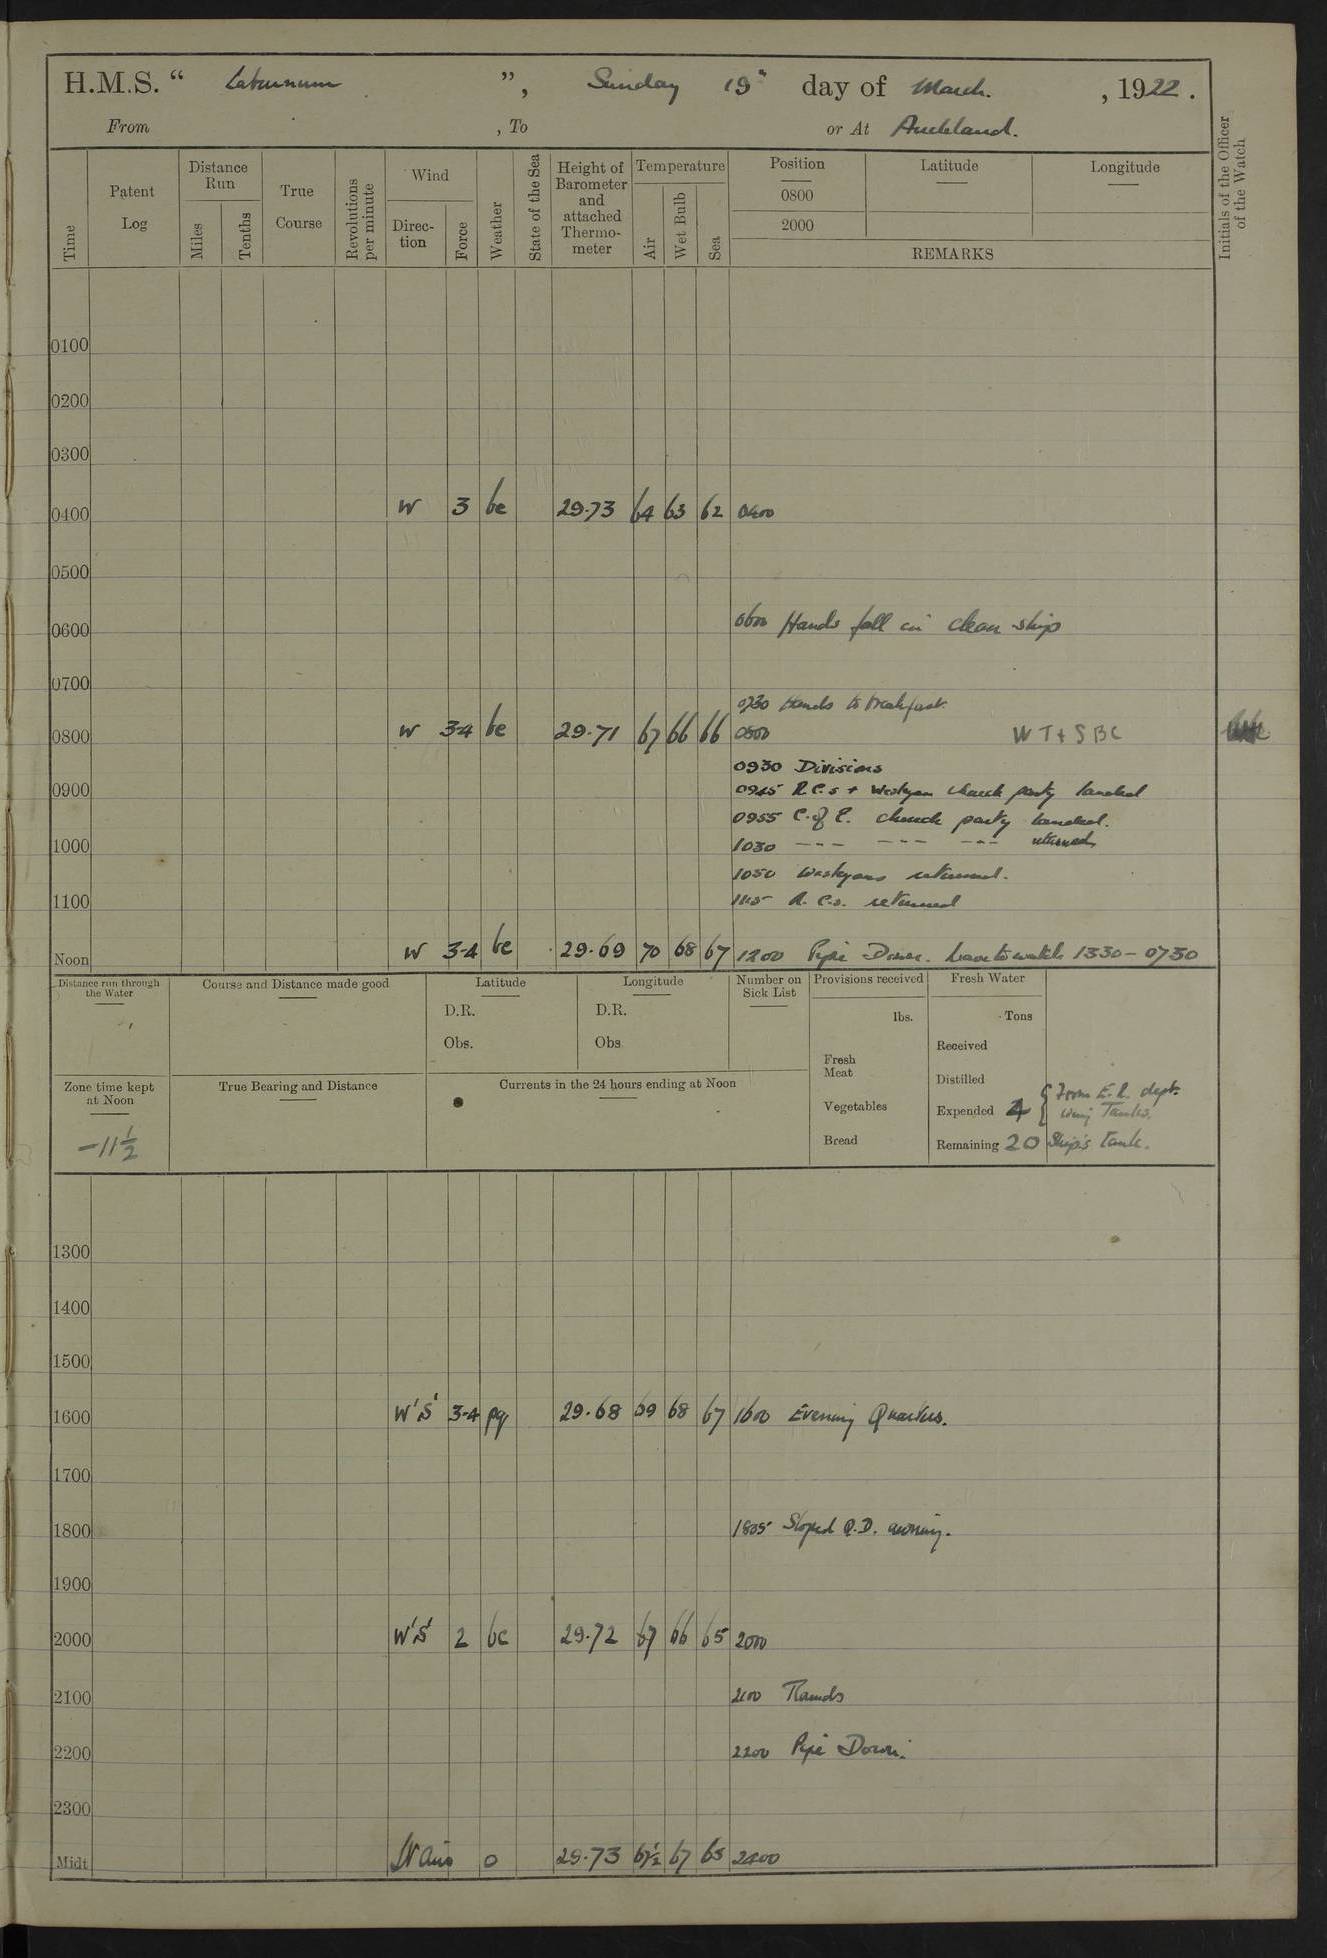 H.M.S. “ Laburnum ”, Sunday 19th day of March. , 1922.
From , To or At Auckland.
Time
Patent Log
Distance Run
Miles
Tenths
True Course
Revolutions per minute
Wind
Direc-tion
Force
Weather
State of the Sea
Height of Barometer and attached Thermo-meter
Temperature
Air
Wet Bulb
Sea
Position
0800
2000
Latitude
Longitude
REMARKS
Initials of the Officer of the Watch
0100
0200
0300
0400 W 3 bc 29.73 64 63 62 0400
0500
0600 0600 Hands fall in clean ship
0700
0730 Hands to breakfast.
0800 W 3-4 bc 29.71 67 66 66 0800 W T & S B C
0930 Divisions
0900 0945 R.C.s + Wesleyan church party landed
0955 C. of E. church party landed.
1000 1030 --- --- --- returned
1050 Wesleyans returned.
1100 1145 R.C.s. returned
Noon W 3-4 bc 29.69 70 68 67 1200 Pipe Down. Leave to watch 1330 - 0730
Distance run through the Water
Course and Distance made good
Latitude
D.R.
Obs.
Longitude
D.R.
Obs
Number on Sick List
Provisions received
lbs.
Fresh Meat
Vegetables
Bread
Fresh Water
Tons
Received
Distilled
Expended 4 { From E.R. dept. Wing Tanks.
Remaining 20 Ship's tank.
Zone time kept at Noon
-11½
True Bearing and Distance
Currents in the 24 hours ending at Noon
1300
1400
1500
1600 W'S' 3-4 pq 29.68 69 68 67 1600 Evening Quarters.
1700
1800 1805 Sloped Q.D. awning.
1900
2000 W'S' 2 bc 29.72 67 66 65 2000
2100 2100 Rounds
2200 2200 Pipe Down.
2300
Midt Lt airs o 29.73 67½ 67 65 2400